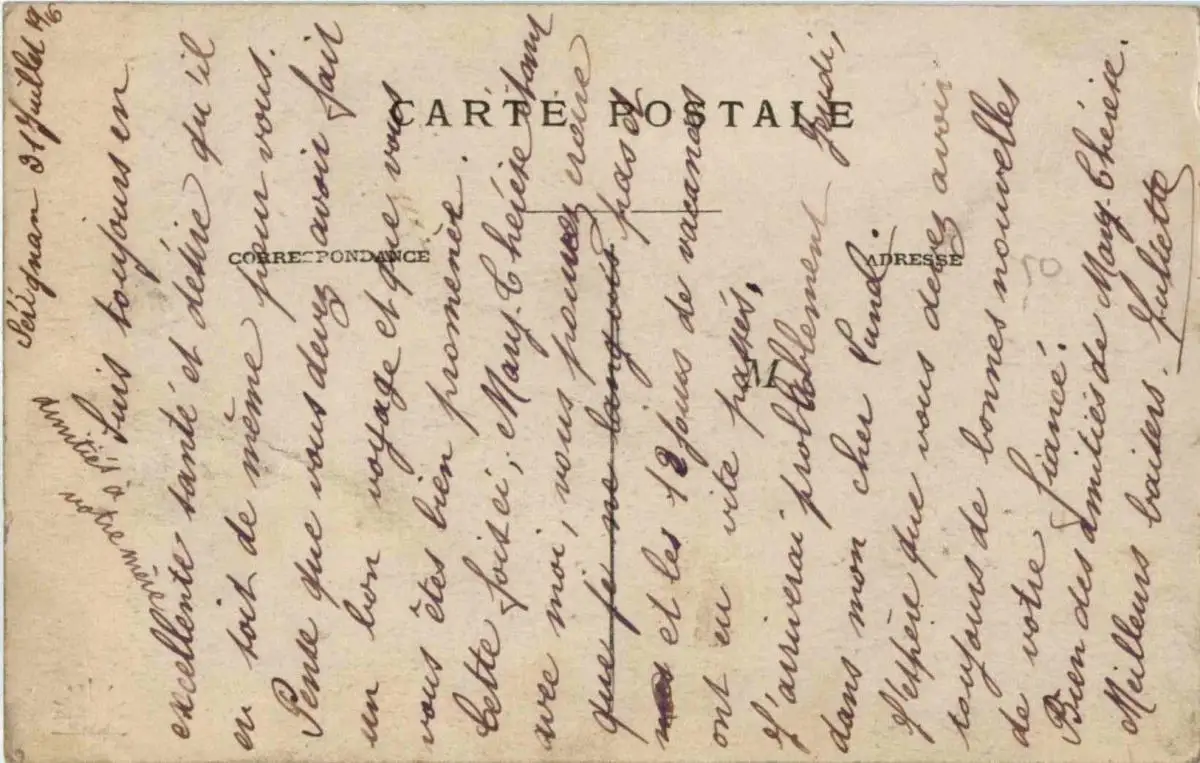 CARTE POSTALE
CORRESPONDANCE
ADRESSE
M
Sérignan 31 Juillet 19
Suis toujours en
excellente santé et désire qu'il
en soit de même pour vous.
Pense que vous devez avoir fait
un bon voyage et que vous
vous êtes bien promenée.
Cette fois ci, Mary-Thérèse étant
avec moi, vous pouvez croire
que je ne languis pas et
et les 12 jours de vacances
ont eu vite passés,
J'arriverai probablement Jeudi,
dans mon cher Lunel.
J'espère que vous devez avoir
toujours de bonnes nouvelles
de votre fiancé.
Bien des amitiés de Mary-Thérèse.
Meilleurs baisers. Juliette
amitiés